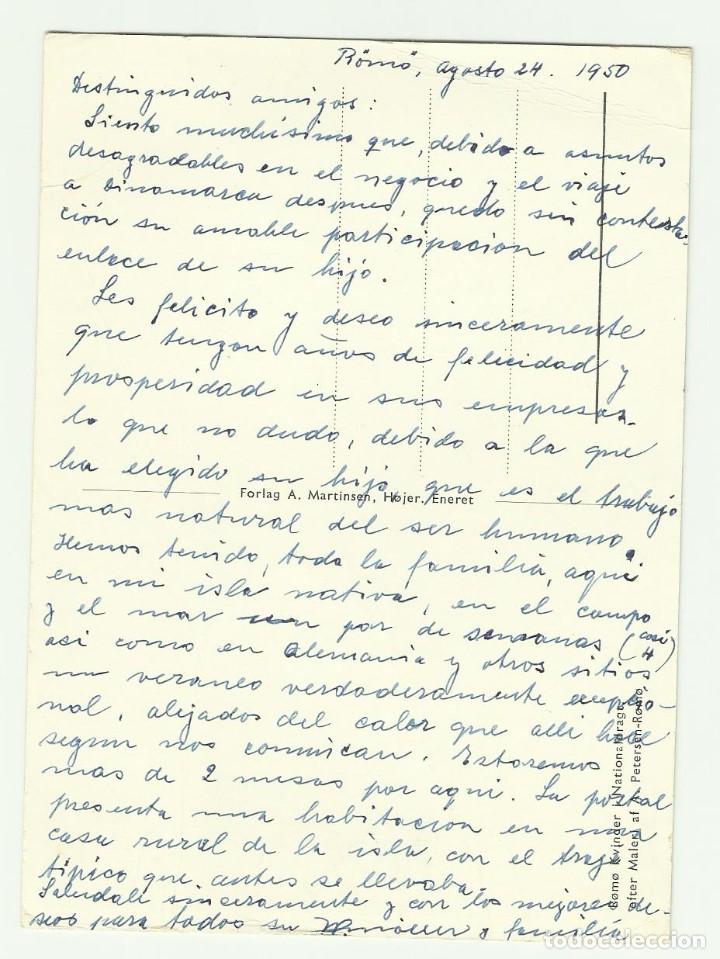 Römö, agosto 24. 1950
Distinguidos amigos:
Siento muchísimo que, debido a asuntos
desagradables en el negocio y el viaje
a Dinamarca despues, quedo sin contesta-
ción su amable participacion del
enlace de su hijo.
Les felicito y deseo sinceramente
que tengan años de felicidad y
prosperidad en sus empresas.
lo que no dudo, debido a la que
ha elegido su hijo, que es el trabajo
Forlag A. Martinsen, Højer. Eneret
mas natural del ser humano.
Hemos tenido, toda la familia, aqui
en mi isla nativa, en el campo
y el mar un par de semanas (casi 4)
asi como en Alemania y otros sitios
un veraneo verdaderamente excepcio-
nal, alejados del calor que alli hace
segun nos comunican. Estaremos
mas de 2 meses por aqui. La postal
presenta una habitacion en una
casa rural de la isla, con el traje
típico que antes se llevaba.
Saludale sinceramente y con los mejores de-
seos para todos su y familia
Rømø Kvinder i Nationaldragt
efter Maleri af Petersen-Rømø
todocoleccion